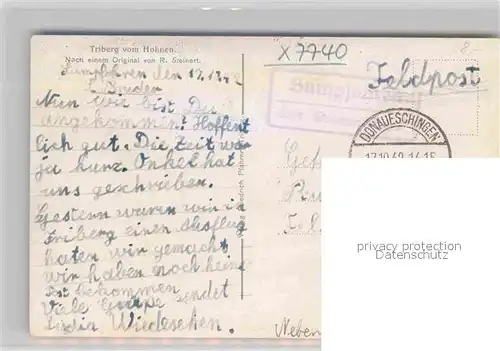 Triberg vom Hohnen.
Nach einem Original von R. Steinert.
X7740
8.-
Feldpost
Sumpfohren den 17.10.42
L. Bruder
Nun wie bist Du
angekommen? Hoffent
lich gut. Die Zeit war
ja kurz. Onkel hat
uns geschrieben.
Gestern waren wir in
Triberg einen Ausflug
haten wir gemacht
wir haben noch keine
Post bekommen
Viele Grüse sendet
Wiedesehen.
Sumpfohren
DONAUESCHINGEN
17.10.42.14-15
privacy protection
Datenschutz
Neben